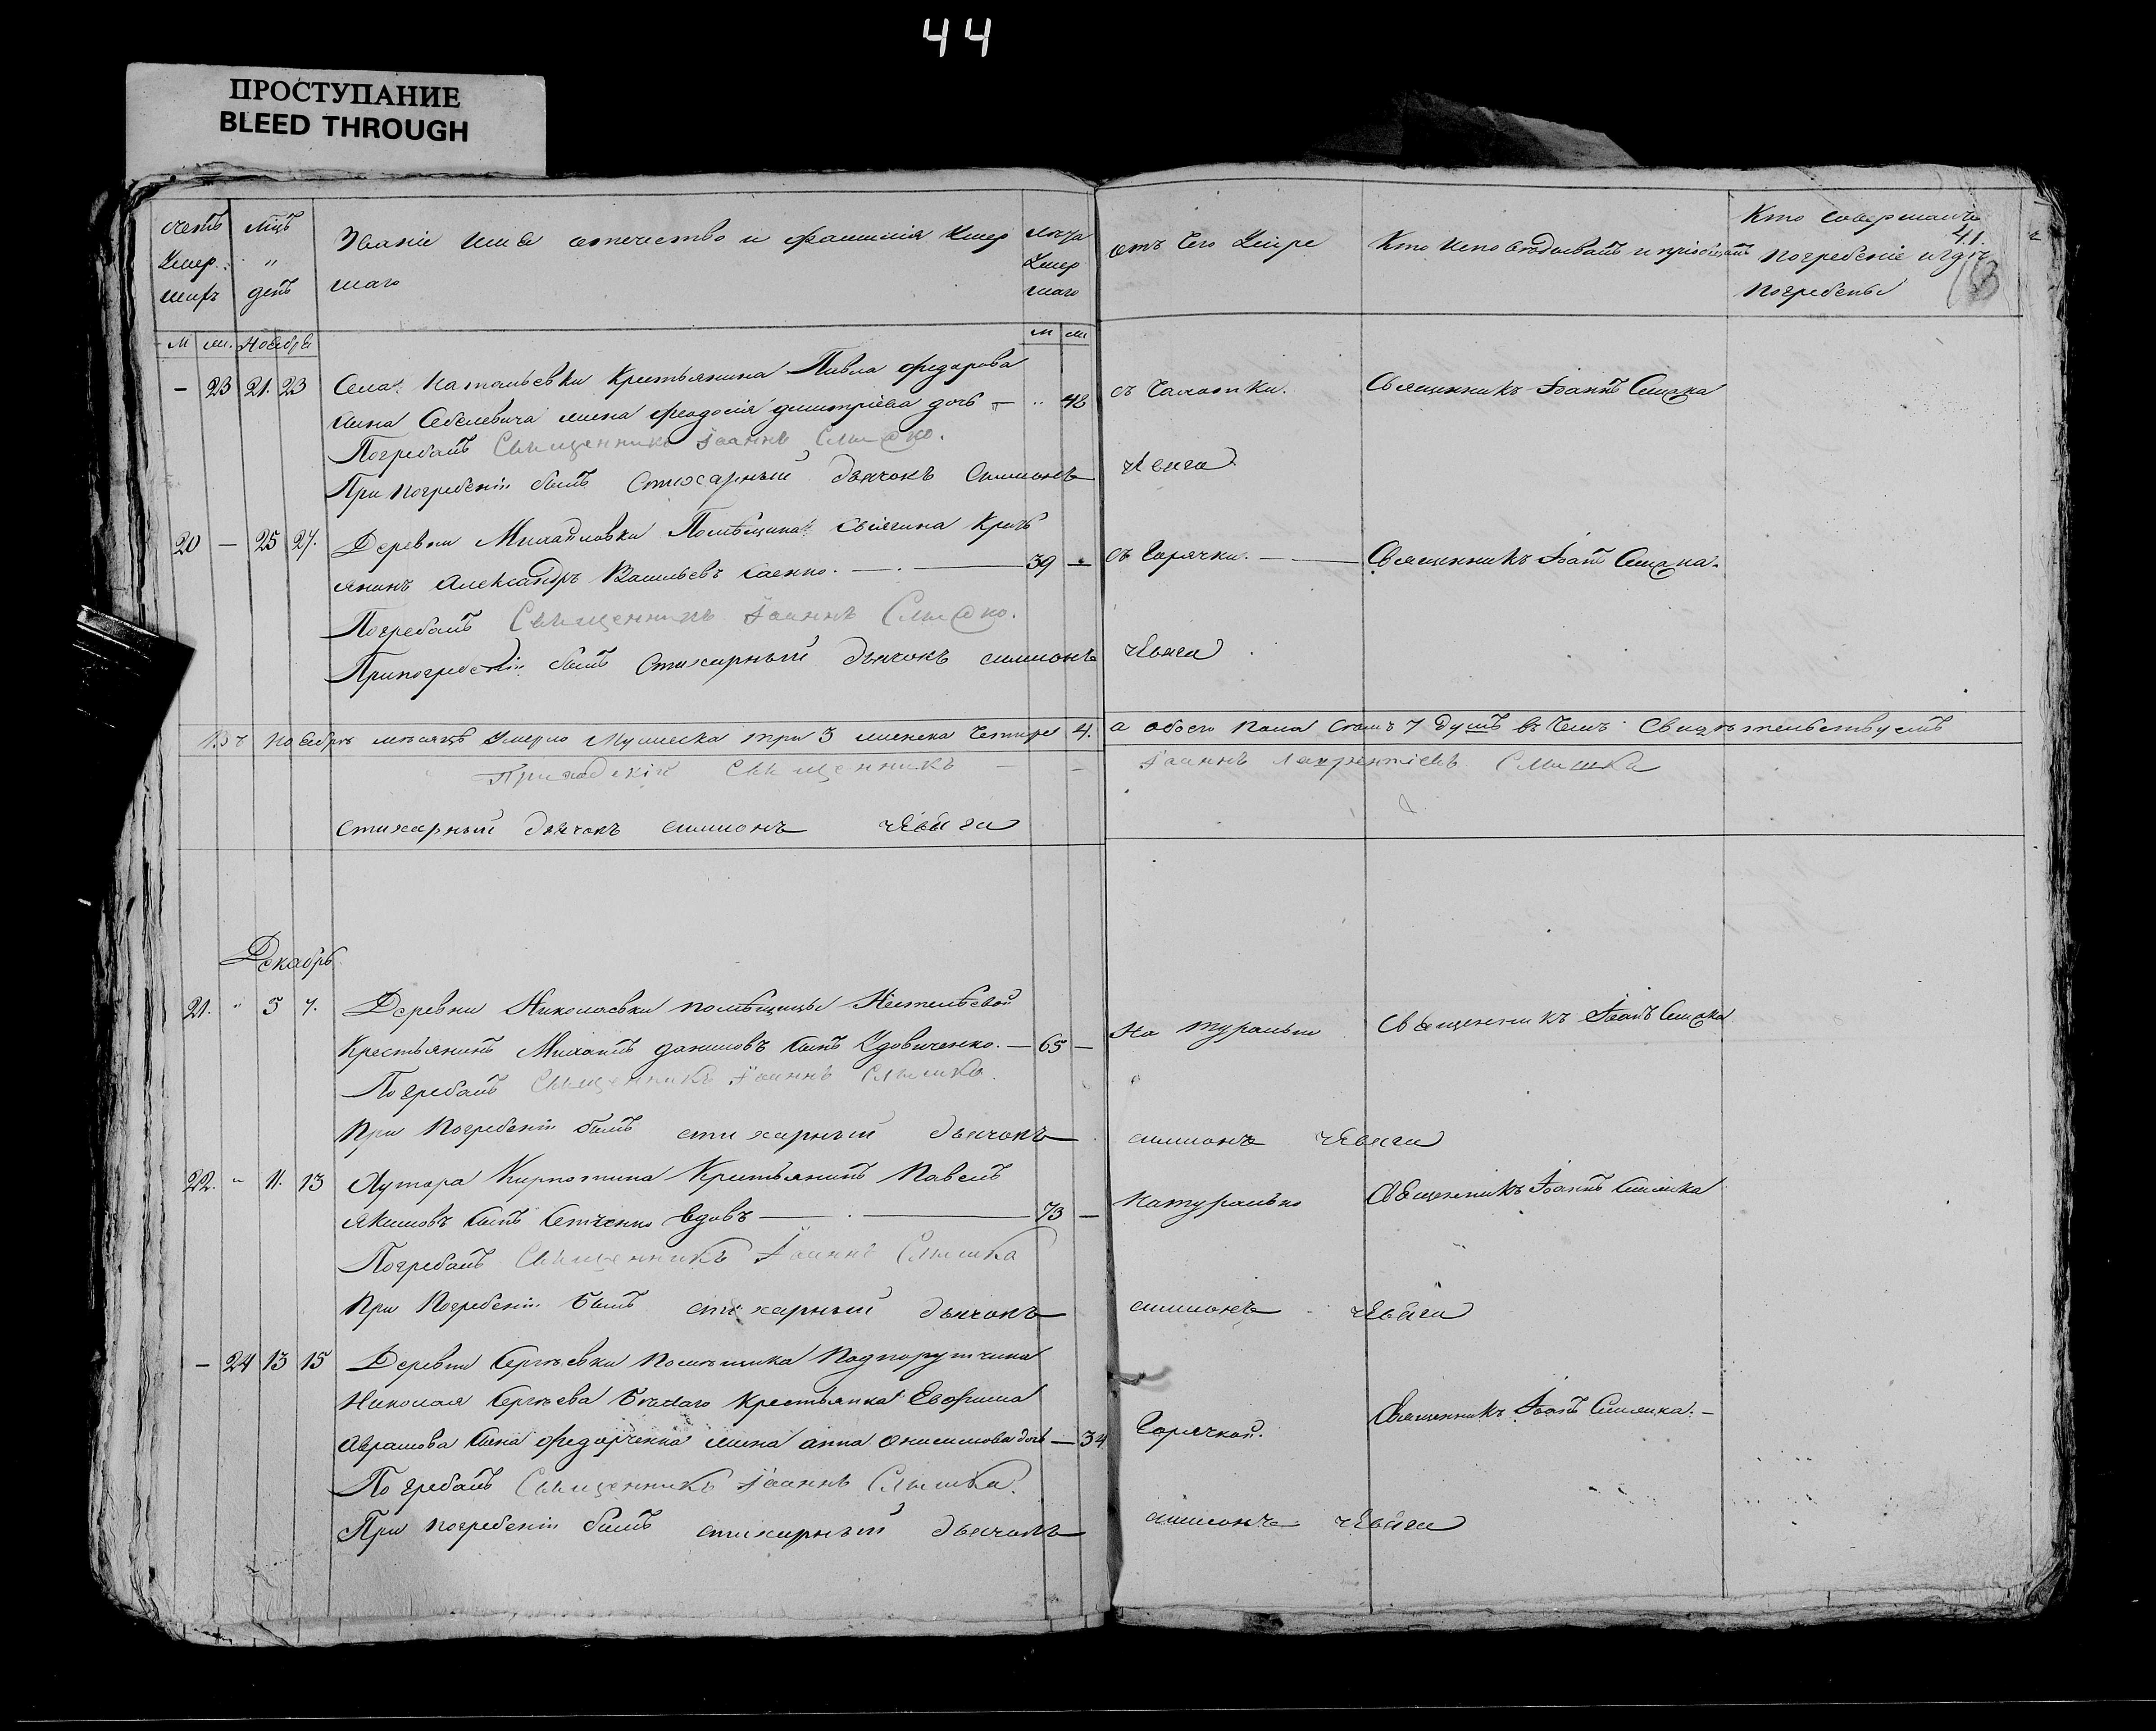 44
ПРОСТУПАНИЕ
BLEED THROUGH
счетъ мцъ Званіе имя отечество и фамилія умер лѣта отъ чего умре Кто исповѣдывалъ и пріобщалъ Кто совершалъ
умер „ шаго умер погребеніе и гдѣ
шихъ день шаго погребены
41.
м ж. Ноября м ж
– 23 21. 23 Села Натальевки Крестьянина Павла федорова
сына жена феодосія димитріева дочь – „ 48 съ Чахотки. Священникъ Іоаннъ Слишка
Погребалъ Священникъ Іоаннъ
При погребеніи былъ Стихарный дьячокъ симионъ
20 – 25 27. Деревни Михайловки Помѣщика Кресть
янинъ Александръ Васильевъ Саенко. – 39 – съ Горячки. – Священникъ Іоаннъ
Погребалъ Священникъ Іоаннъ
При погребеніи былъ Стихарный дьячокъ симионъ
Въ ноябрѣ мѣсяцѣ умерло Мужеска три 3 женска Четыре 4. а обоего пола семь 7 душъ въ чемъ Свидѣтельствуемъ
Приходскій Священникъ Іоаннъ Лаврентіевъ Слишка
стихарный дьячокъ симионъ
Декабрь
21. „ 5 7. Деревни Николаевки помѣщицы
Крестьянинъ Михаилъ даниловъ сынъ Удовиченко. – 65 – Натурально Священникъ Іоаннъ Слишка
Погребалъ Священникъ Іоаннъ Слишка.
При Погребеніи былъ стихарный дьячокъ симионъ
22. „ 11. 13 Хутора Кирпотина Крестьянинъ Павелъ
Якимовъ сынъ вдовъ – 73 – натурально Священникъ Іоаннъ Слишка
Погребалъ Священникъ Іоаннъ Слишка
При Погребеніи былъ стихарный дьячокъ симионъ
– 24 13 15 Деревни Сергѣевки помѣщика Подпорутчика
Николая Сергѣева крестьянина Евфима
Аврамова сына федорченка жена анна Онисимова дочь – 34 Горячкой. Священникъ Іоаннъ Слишка. –
Погребалъ Священникъ Іоаннъ Слишка.
При погребеніи былъ стихарный дьячокъ симионъ